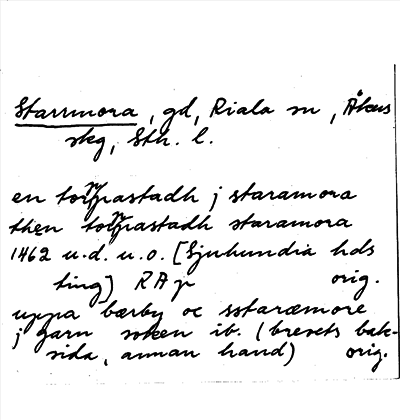 Starrmora, gd, Riala sn, Åkers
skg, Sth. l.
en torpastadh j staramora
then torpastadh staramora
1462 u.d. u.o. [Sjuhundia hds
ting] RAp orig.
uppa bærby oc sstaræmore
j garn soken ib. (brevets bak-
sida, annan hand) orig.